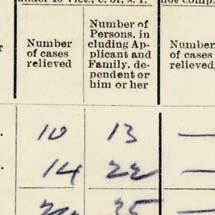 under 10 Vict., c. 31, s. 1
not comp
Number
of cases
relieved
Number of
Persons, in
cluding Ap-
plicant and
Family, de-
pendent or
him or her
Number
of cases
relieved
10 13 —
14 22 —
35